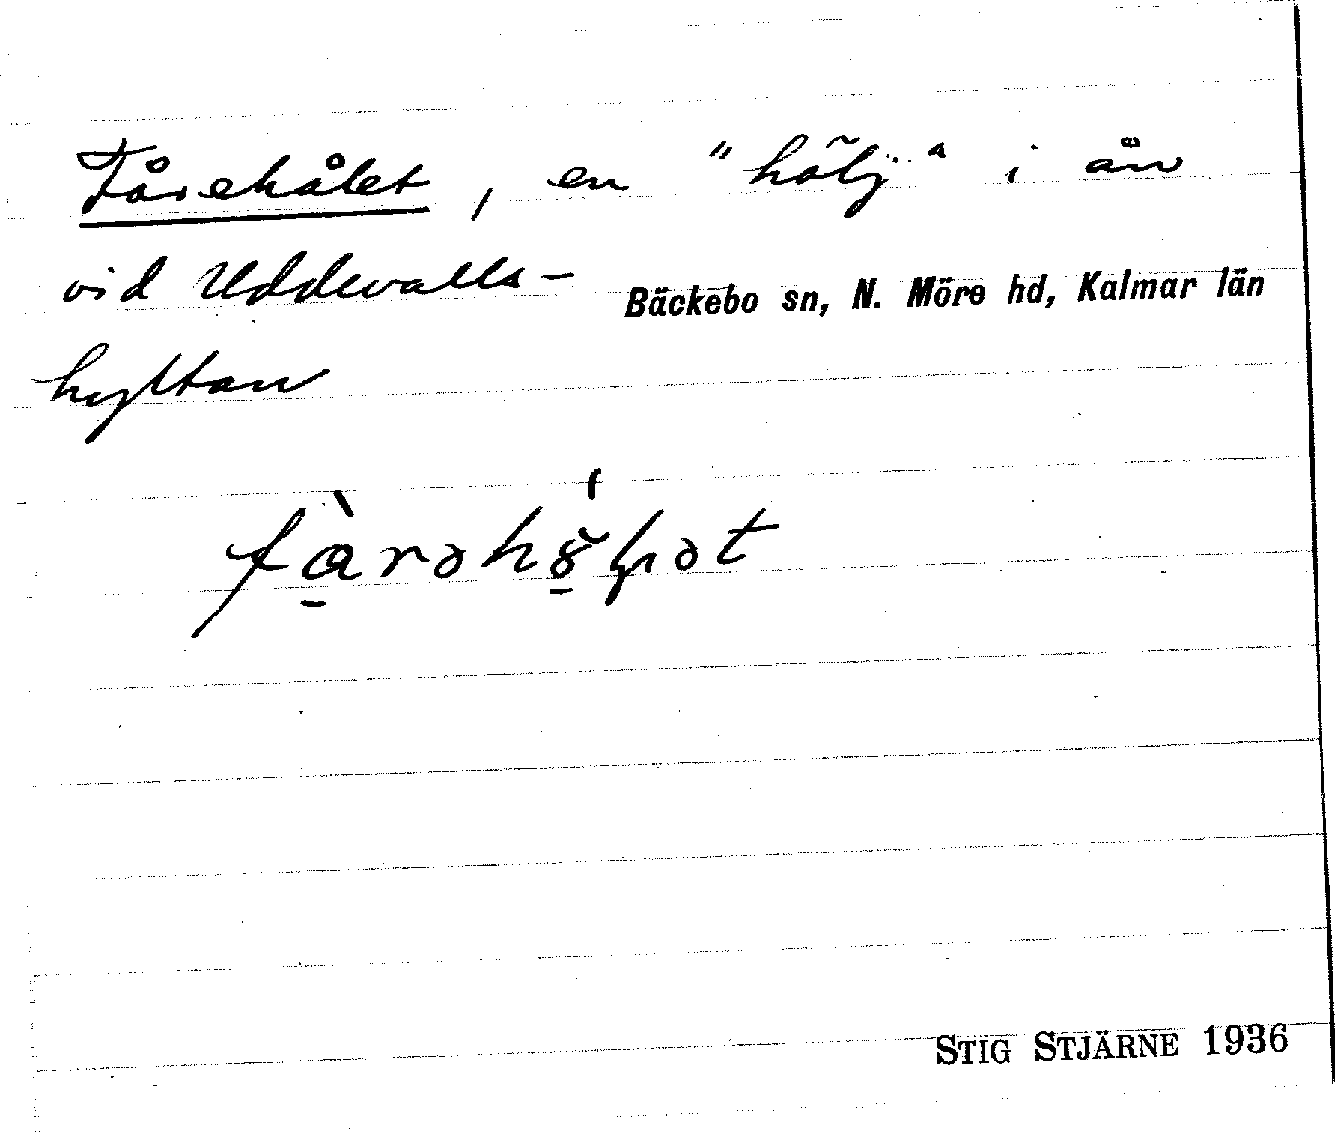 Fårehålet, en "hölj" i ån
vid Uddevalla-
Bäckebo sn, N. Möre hd, Kalmar län
hyttan
STIG STJÄRNE 1936